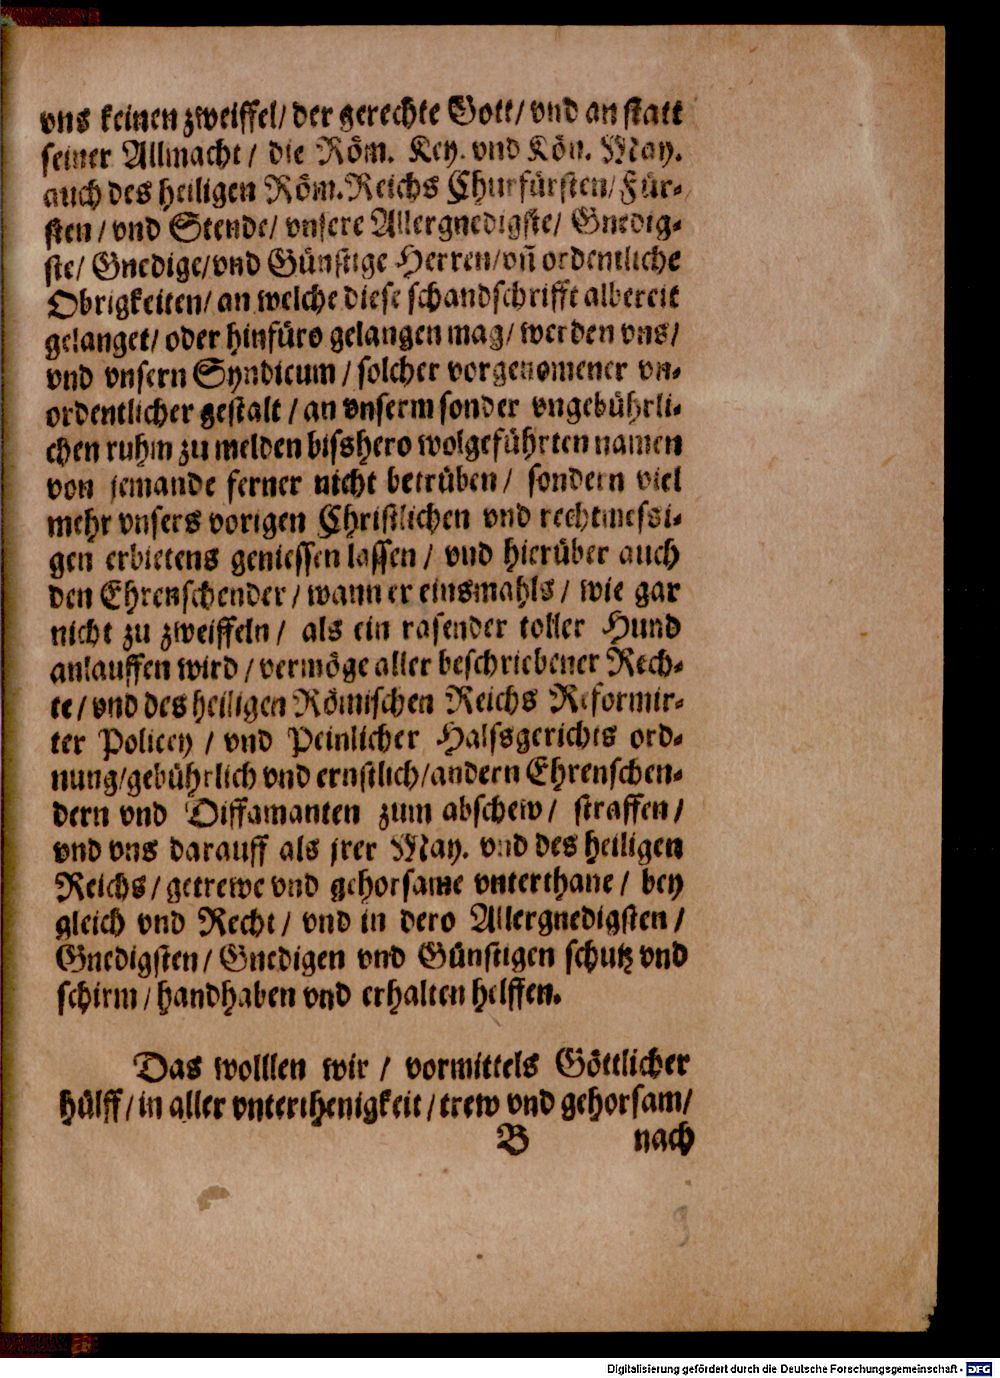 vns keinen zweiffel/ der gerechte Gott/ vnd an statt
seiner Allmacht/ die Röm. Key. vnd Kön. May.
auch des heiligen Röm. Reichs Churfürsten/ Für-
sten/ vnd Stende/ vnsere Allergnedigste/ Gnedig-
ste/ Gnedige/ vnd Günstige Herren/ vn̄ ordentliche
Obrigkeiten/ an welche diese schandschrifft albereit
gelanget/ oder hinfüro gelangen mag/ werden vns/
vnd vnsern Syndicum/ solcher vorgenomener vn-
ordentlicher gestalt/ an vnserm sonder vngebührli-
chen ruhm zu melden bisshero wolgeführten namen
von jemande ferner nicht betrüben/ sondern viel
mehr vnsers vorigen Christlichen vnd rechtmessi-
gen erbietens geniessen lassen/ vnd hierüber auch
den Ehrenschender/ wann er einsmahls/ wie gar
nicht zu zweiffeln/ als ein rasender toller Hund
anlauffen wird/ vermöge aller beschriebener Rech-
te/ vnd des heiligen Römischen Reichs Reformir-
ter Policey/ vnd Peinlicher Halssgerichts ord-
nung/ gebührlich vnd ernstlich/ andern Ehrenschen-
dern vnd Diffamanten zum abschew/ straffen/
vnd vns darauff als jrer May. vnd des heiligen
Reichs/ getrewe vnd gehorsame vnterthane/ bey
gleich vnd Recht/ vnd in dero Allergnedigsten/
Gnedigsten/ Gnedigen vnd Günstigen schutz vnd
schirm/ handhaben vnd erhalten helffen.
Das wolllen wir/ vormittels Göttlicher
hülff/ in aller vnterthenigkeit/ trew vnd gehorsam/
B nach
9
Digitalisierung gefördert durch die Deutsche Forschungsgemeinschaft - DFG